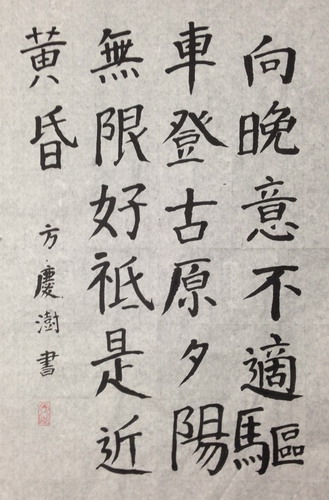 向晚意不適驅
車登古原夕陽
無限好祗是近
黃昏
方慶澍書